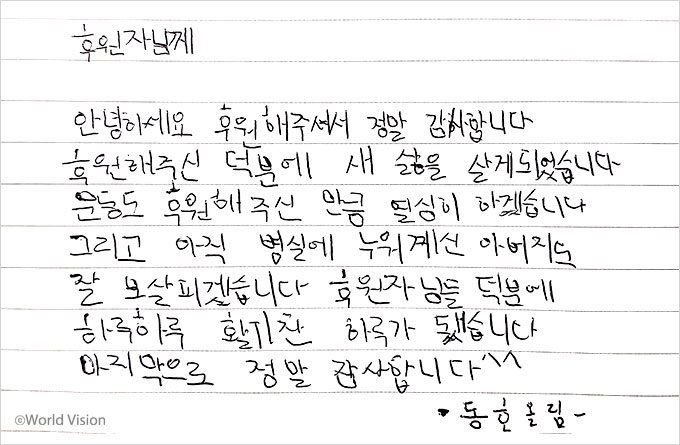 후원자님께
안녕하세요 후원해주셔서 정말 감사합니다
후원해주신 덕분에 새 삶을 살게되었습니다
운동도 후원해주신 만큼 열심히 하겠습니다
그리고 아직 병실에 누워계신 아버지도
잘 보살피겠습니다 후원자님들 덕분에
하루하루 활기찬 하루가 됐습니다
마지막으로 정말 감사합니다^^
- 동훈올림 -
©World Vision